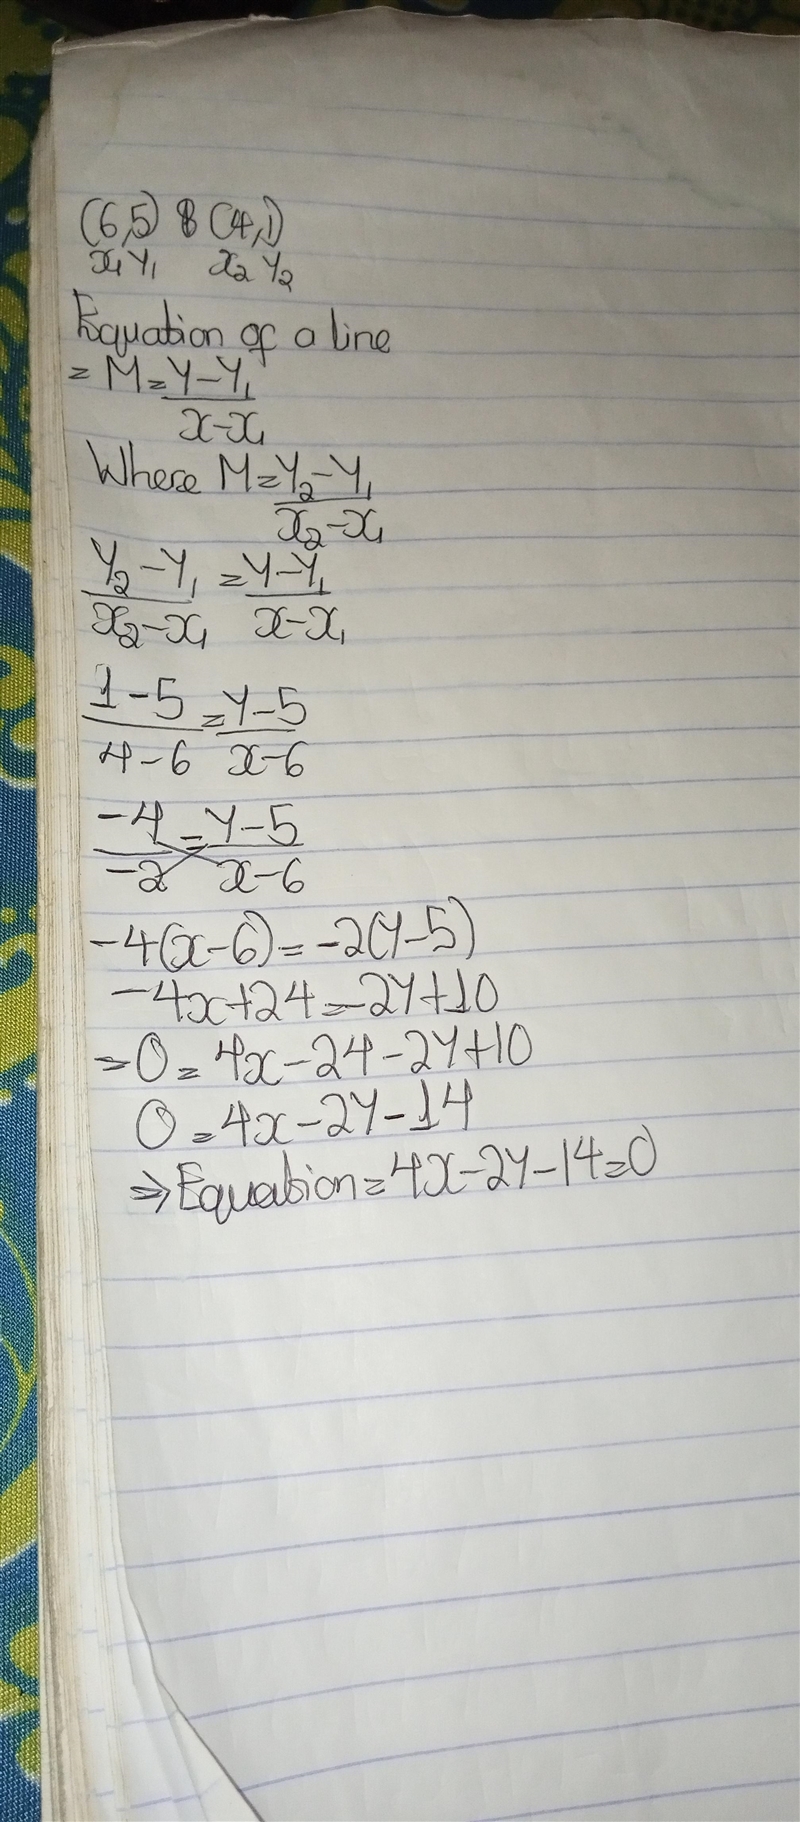 (6,5) & (4,1)
x₁ y₁ x₂ y₂
Equation of a line
= M = Y-Y₁
x-x₁
Where M = Y₂-Y₁
x₂-x₁
Y₂-Y₁ = Y-Y₁
x₂-x₁ x-x₁
1-5 = Y-5
4-6 x-6
-4 = Y-5
-2 x-6
-4(x-6) = -2(Y-5)
-4x+24 = -2Y+10
= 0 = 4x-24-2Y+10
0 = 4x-2Y-14
⇒ Equation = 4x-2Y-14=0